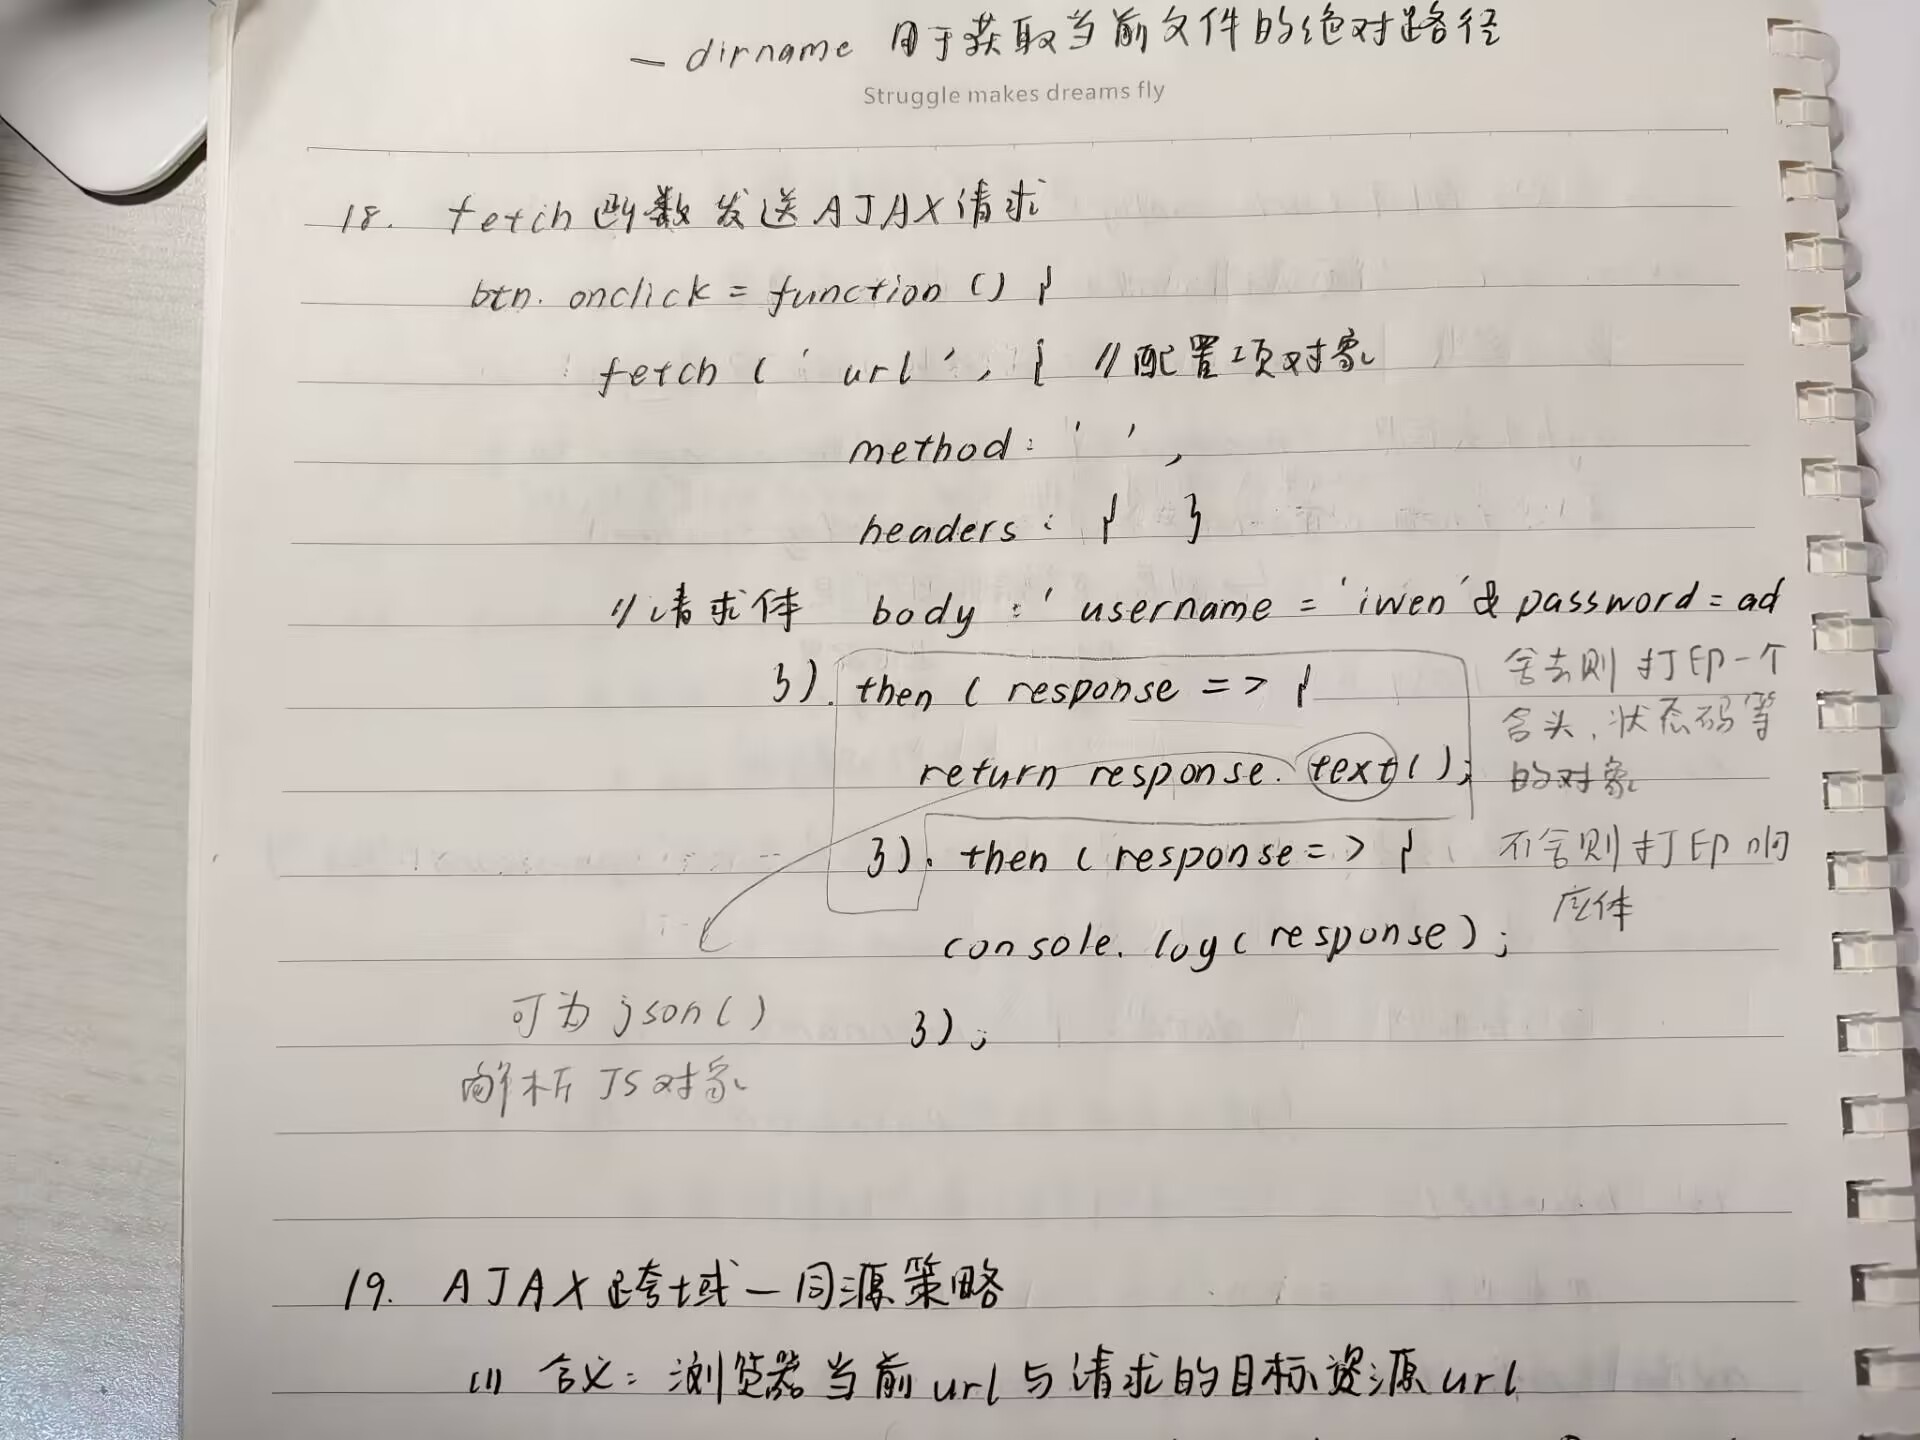 — dirname 用于获取当前文件的绝对路径
Struggle makes dreams fly
18. fetch 函数发送 AJAX 请求
btn. onclick = function () {
fetch ( ' url ' , { // 配置项对象
method : ' ' ,
headers : { }
// 请求体 body : ' username = 'iwen' & password = ad
}). then ( response => {
舍去则打印一个
含头、状态码等
return response. text ( );
的对象
}). then ( response = > {
不舍则打印响
应体
console. log ( response ) ;
可为 json ( )
}) ;
解析 JS 对象
19. AJAX 跨域 — 同源策略
(1) 含义: 浏览器当前 url 与请求的目标资源 url